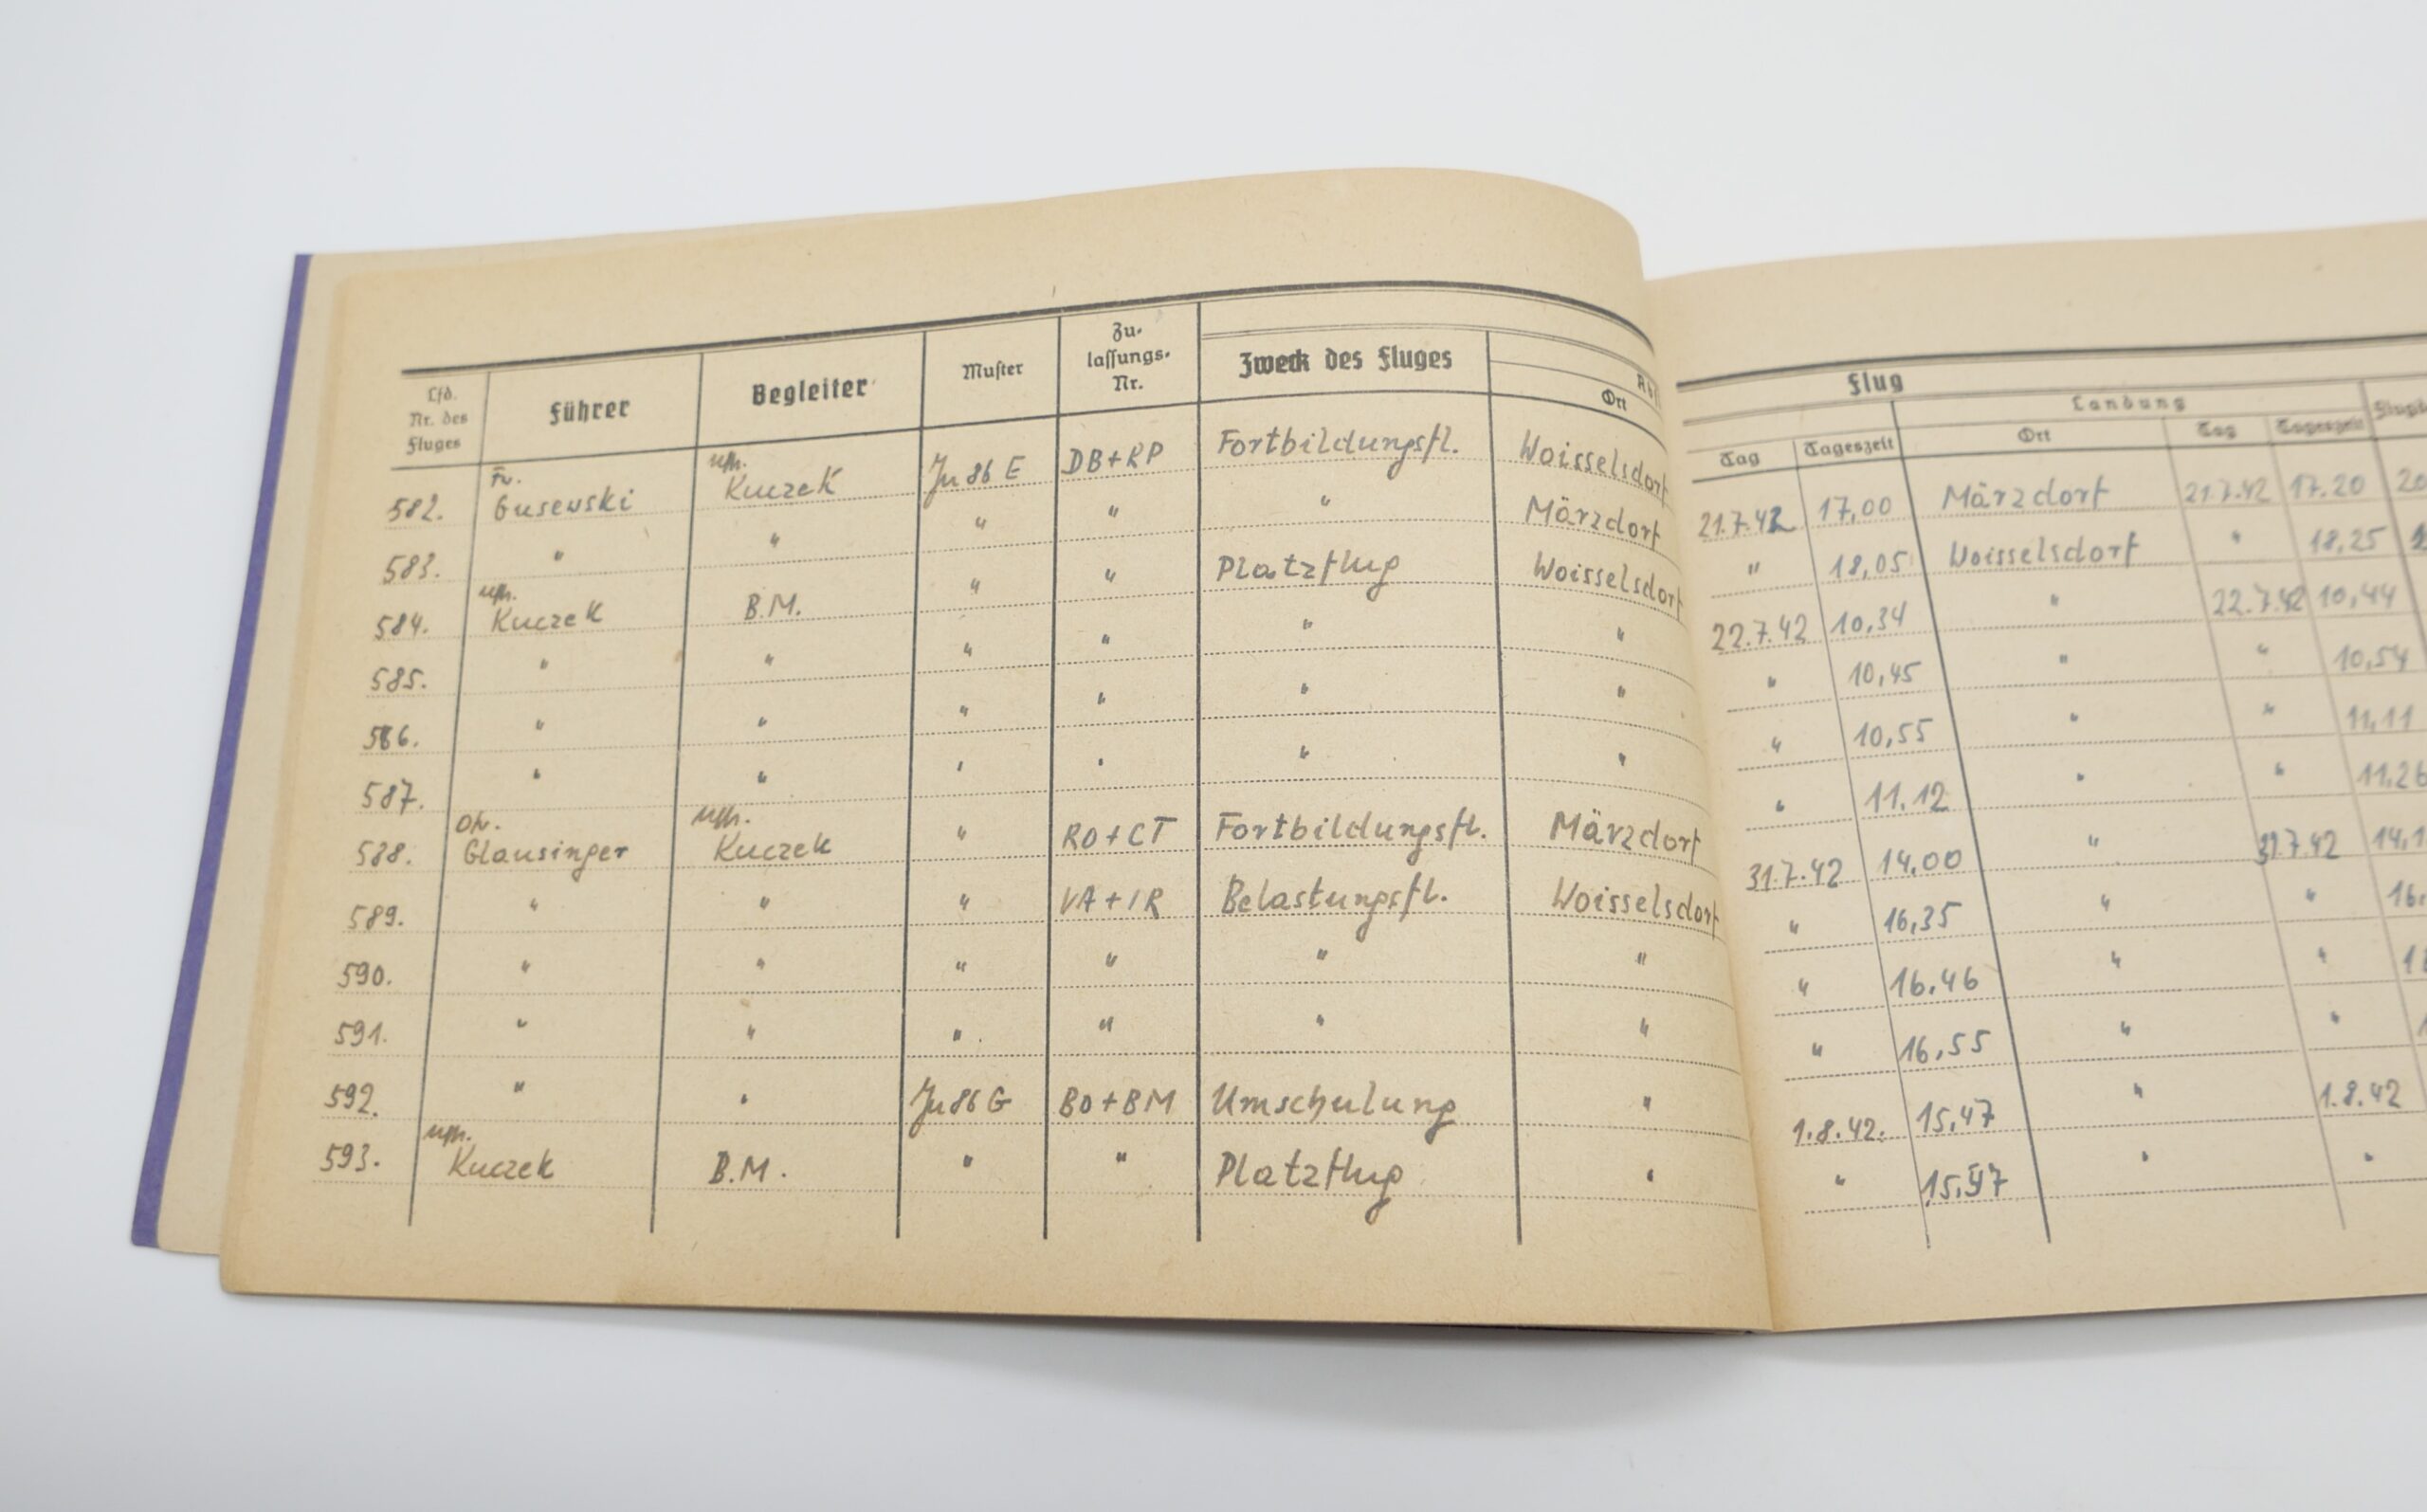 Lfd. Nr. des Fluges Führer Begleiter Muster Zu- lassungs- Nr. Zweck des Fluges Ort Flug Tag Tageszeit Landung Ort Tag Tageszeit
582. Fw. Gusewski Uffz. Kuczek Ju 86 E DB+RP Fortbildungsfl. Woisselsdorf 21.7.42 17,00 Märzdorf 21.7.42 17.20 20
583. " " " " " Märzdorf " 18,05 Woisselsdorf " 18,25
584. Uffz. Kuczek B.M. " " Platzflug Woisselsdorf 22.7.42 10,34 " 22.7.42 10,44
585. " " " " " " " 10,45 " " 10,54
586. " " " " " " " 10,55 " " 11,11
587. " " " " " " " 11.12 " " 11,26
588. Ofw. Glausinger Uffz. Kuczek " RO+CT Fortbildungsfl. Märzdorf 31.7.42 14,00 " 31.7.42
589. " " " VA+IR Belastungsfl. Woisselsdorf " 16,35 " "
590. " " " " " " " 16,46 " "
591. " " " " " " " 16,55 " "
592. " " Ju 86 G BO+BM Umschulung " 1.8.42. 15,47 " 1.8.42
593. Uffz. Kuczek B.M. " " Platzflug " " " "